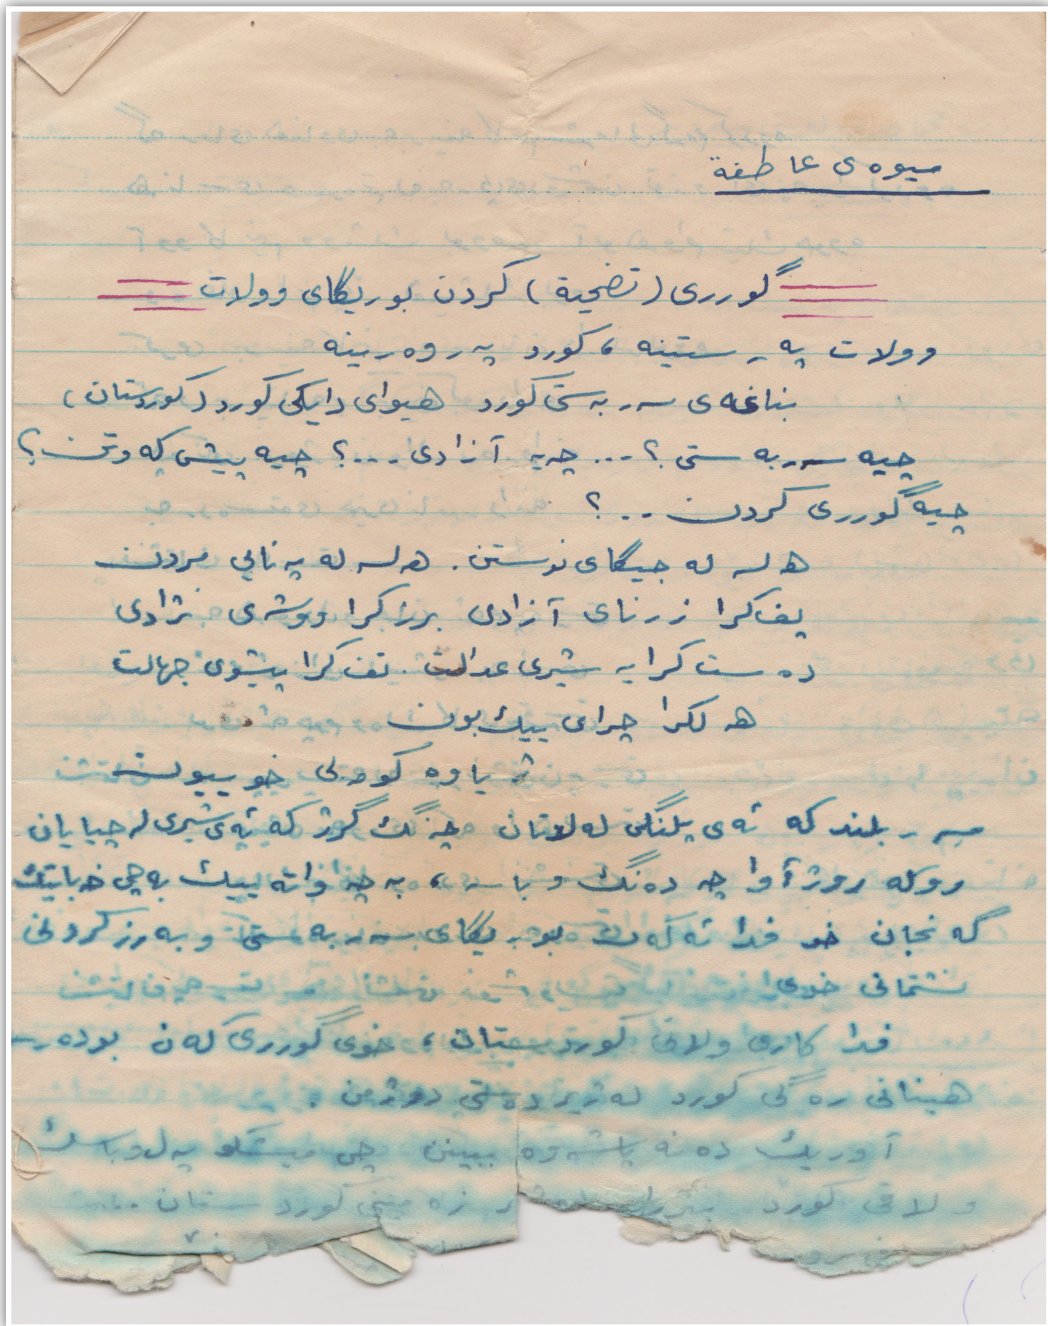 میوه‌ی عاطفة
گورری (تضحیة) کردن بوریگای وولات
وولات په‌رستینه ، کورد په‌روه‌رینه
بناغه‌ی سه‌ربه‌ستی کورد هیوای دایکی کورد (کوردستان)
چیه سه‌ربه‌ستی ؟ ... چه‌یه آزادی ...؟ چیه پیش که‌وتن ؟
چیه گورری کردن ... ؟
هه‌لسه له جیگای نوستن . هه‌لسه له په‌نایی مردن
پف کرا زرنای آزادی برزکرا ووشه‌ی نژادی
ده‌ست کرا به شیری عدالت . تف کرا پیشوی جهالت
هه‌لکرا چرای ییک بون
ژیاوه کومه‌لی خوییبون
سه‌ربلندکه ئه‌ی پلنگی له‌لانان چه‌نگ گورژکه ئه‌ی شیری له چیایان
رووکه روژآوا چه ده‌نگ و باسه ، به چه‌واته ییک به چی خه‌باتیک
گه‌نجان خو فدا ئه‌که‌ن بوریگای سه‌ربه‌ستی و به‌رزکردنی
نشتمانی خوی
فدا کاری ولاتی کوردستان ، خوی گورری که‌ن بوده‌ر
هینانی ره‌گی کورد له‌ژیر ده‌ستی دوژمن .
آوریک ده‌نه پاشه‌وه ببینن چی
ولاتی کورد زه‌مینی کوردستان